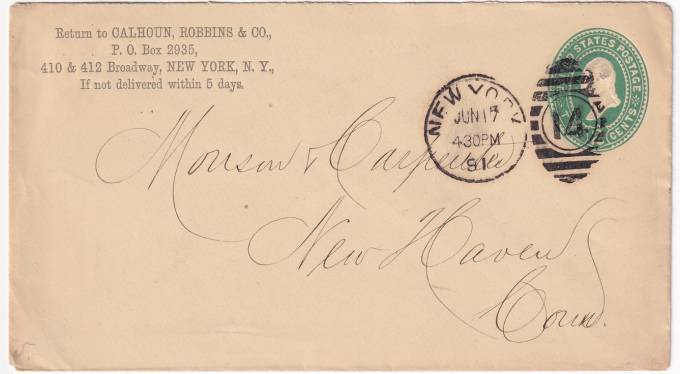 Return to CALHOUN, ROBBINS & CO.,
P. O. Box 2935,
410 & 412 Broadway, NEW YORK, N. Y.,
If not delivered within 5 days.
STATES POSTAGE
CENTS
NEW YORK
JUN 17
4 30 PM
91
14
Monson & Carpenter
New Haven
Conn.